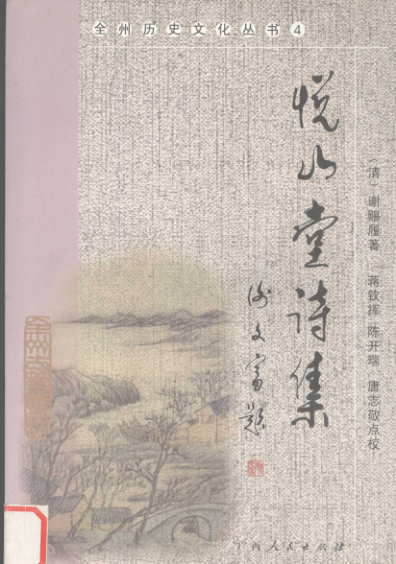 全州历史文化丛书④
悦山堂诗集
(清)谢赐履著 蒋钦挥 陈开瑞 唐志敬点校
谢文富题
广西人民出版社